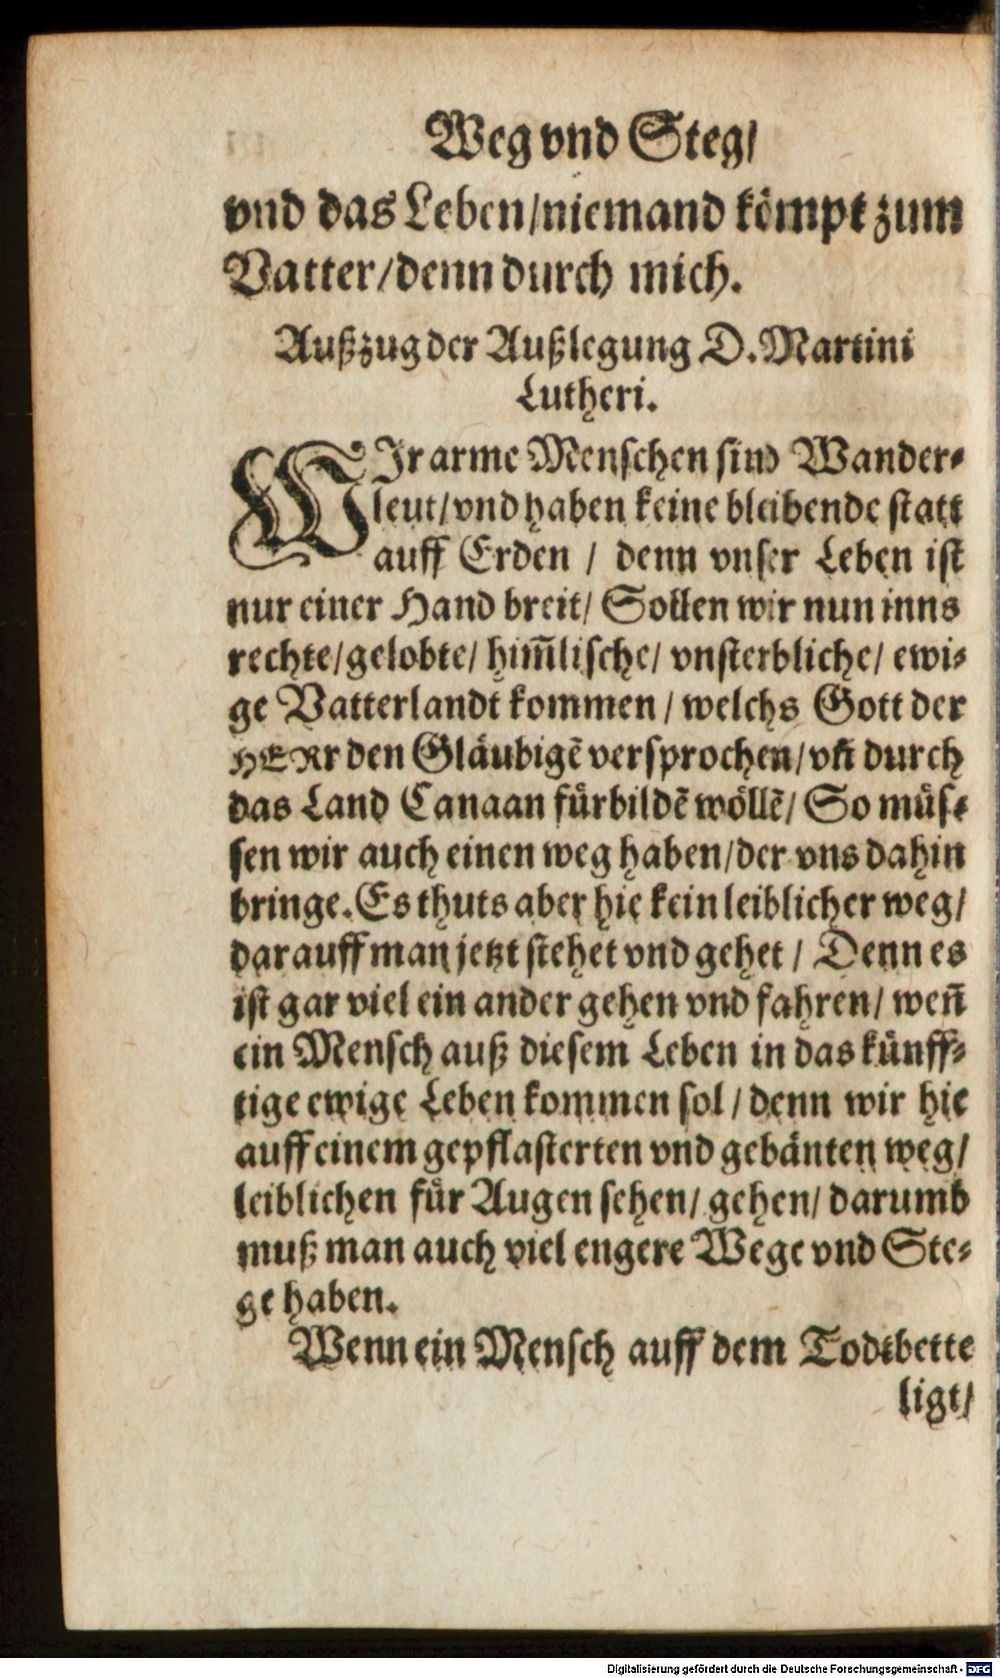 Weg vnd Steg/
vnd das Leben/niemand kömpt zum
Vatter/denn durch mich.
Außzug der Außlegung D. Martini
Lutheri.
WJr arme Menschen sind Wander-
leut/vnd haben keine bleibende statt
auff Erden / denn vnser Leben ist
nur einer Hand breit/ Sollen wir nun inns
rechte/gelobte/ him̃lische/ vnsterbliche/ ewi-
ge Vatterlandt kommen / welchs Gott der
HERr den Gläubigẽ versprochen/ vñ durch
das Land Canaan fürbildẽ wöllẽ/ So müs-
sen wir auch einen weg haben/der vns dahin
bringe. Es thuts aber hie kein leiblicher weg/
darauff man jetzt stehet vnd gehet / Denn es
ist gar viel ein ander gehen vnd fahren/ weñ
ein Mensch auß diesem Leben in das künff-
tige ewige Leben kommen sol / denn wir hie
auff einem gepflasterten vnd gebänten weg/
leiblichen für Augen sehen/ gehen/ darumb
muß man auch viel engere Wege vnd Ste-
ge haben.
Wenn ein Mensch auff dem Todtbette
ligt/
Digitalisierung gefördert durch die Deutsche Forschungsgemeinschaft - DFG